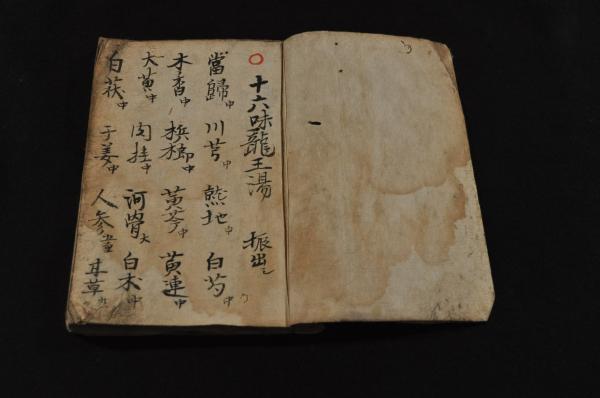 〇十六味龍王湯 振出し
當歸中 川芎中 熟地中 白芍中
木香中 檳榔中 黄芩中 黄連中
大黄中 肉桂中 河骨大 白朮中
白茯中 干姜中 人参 甘草